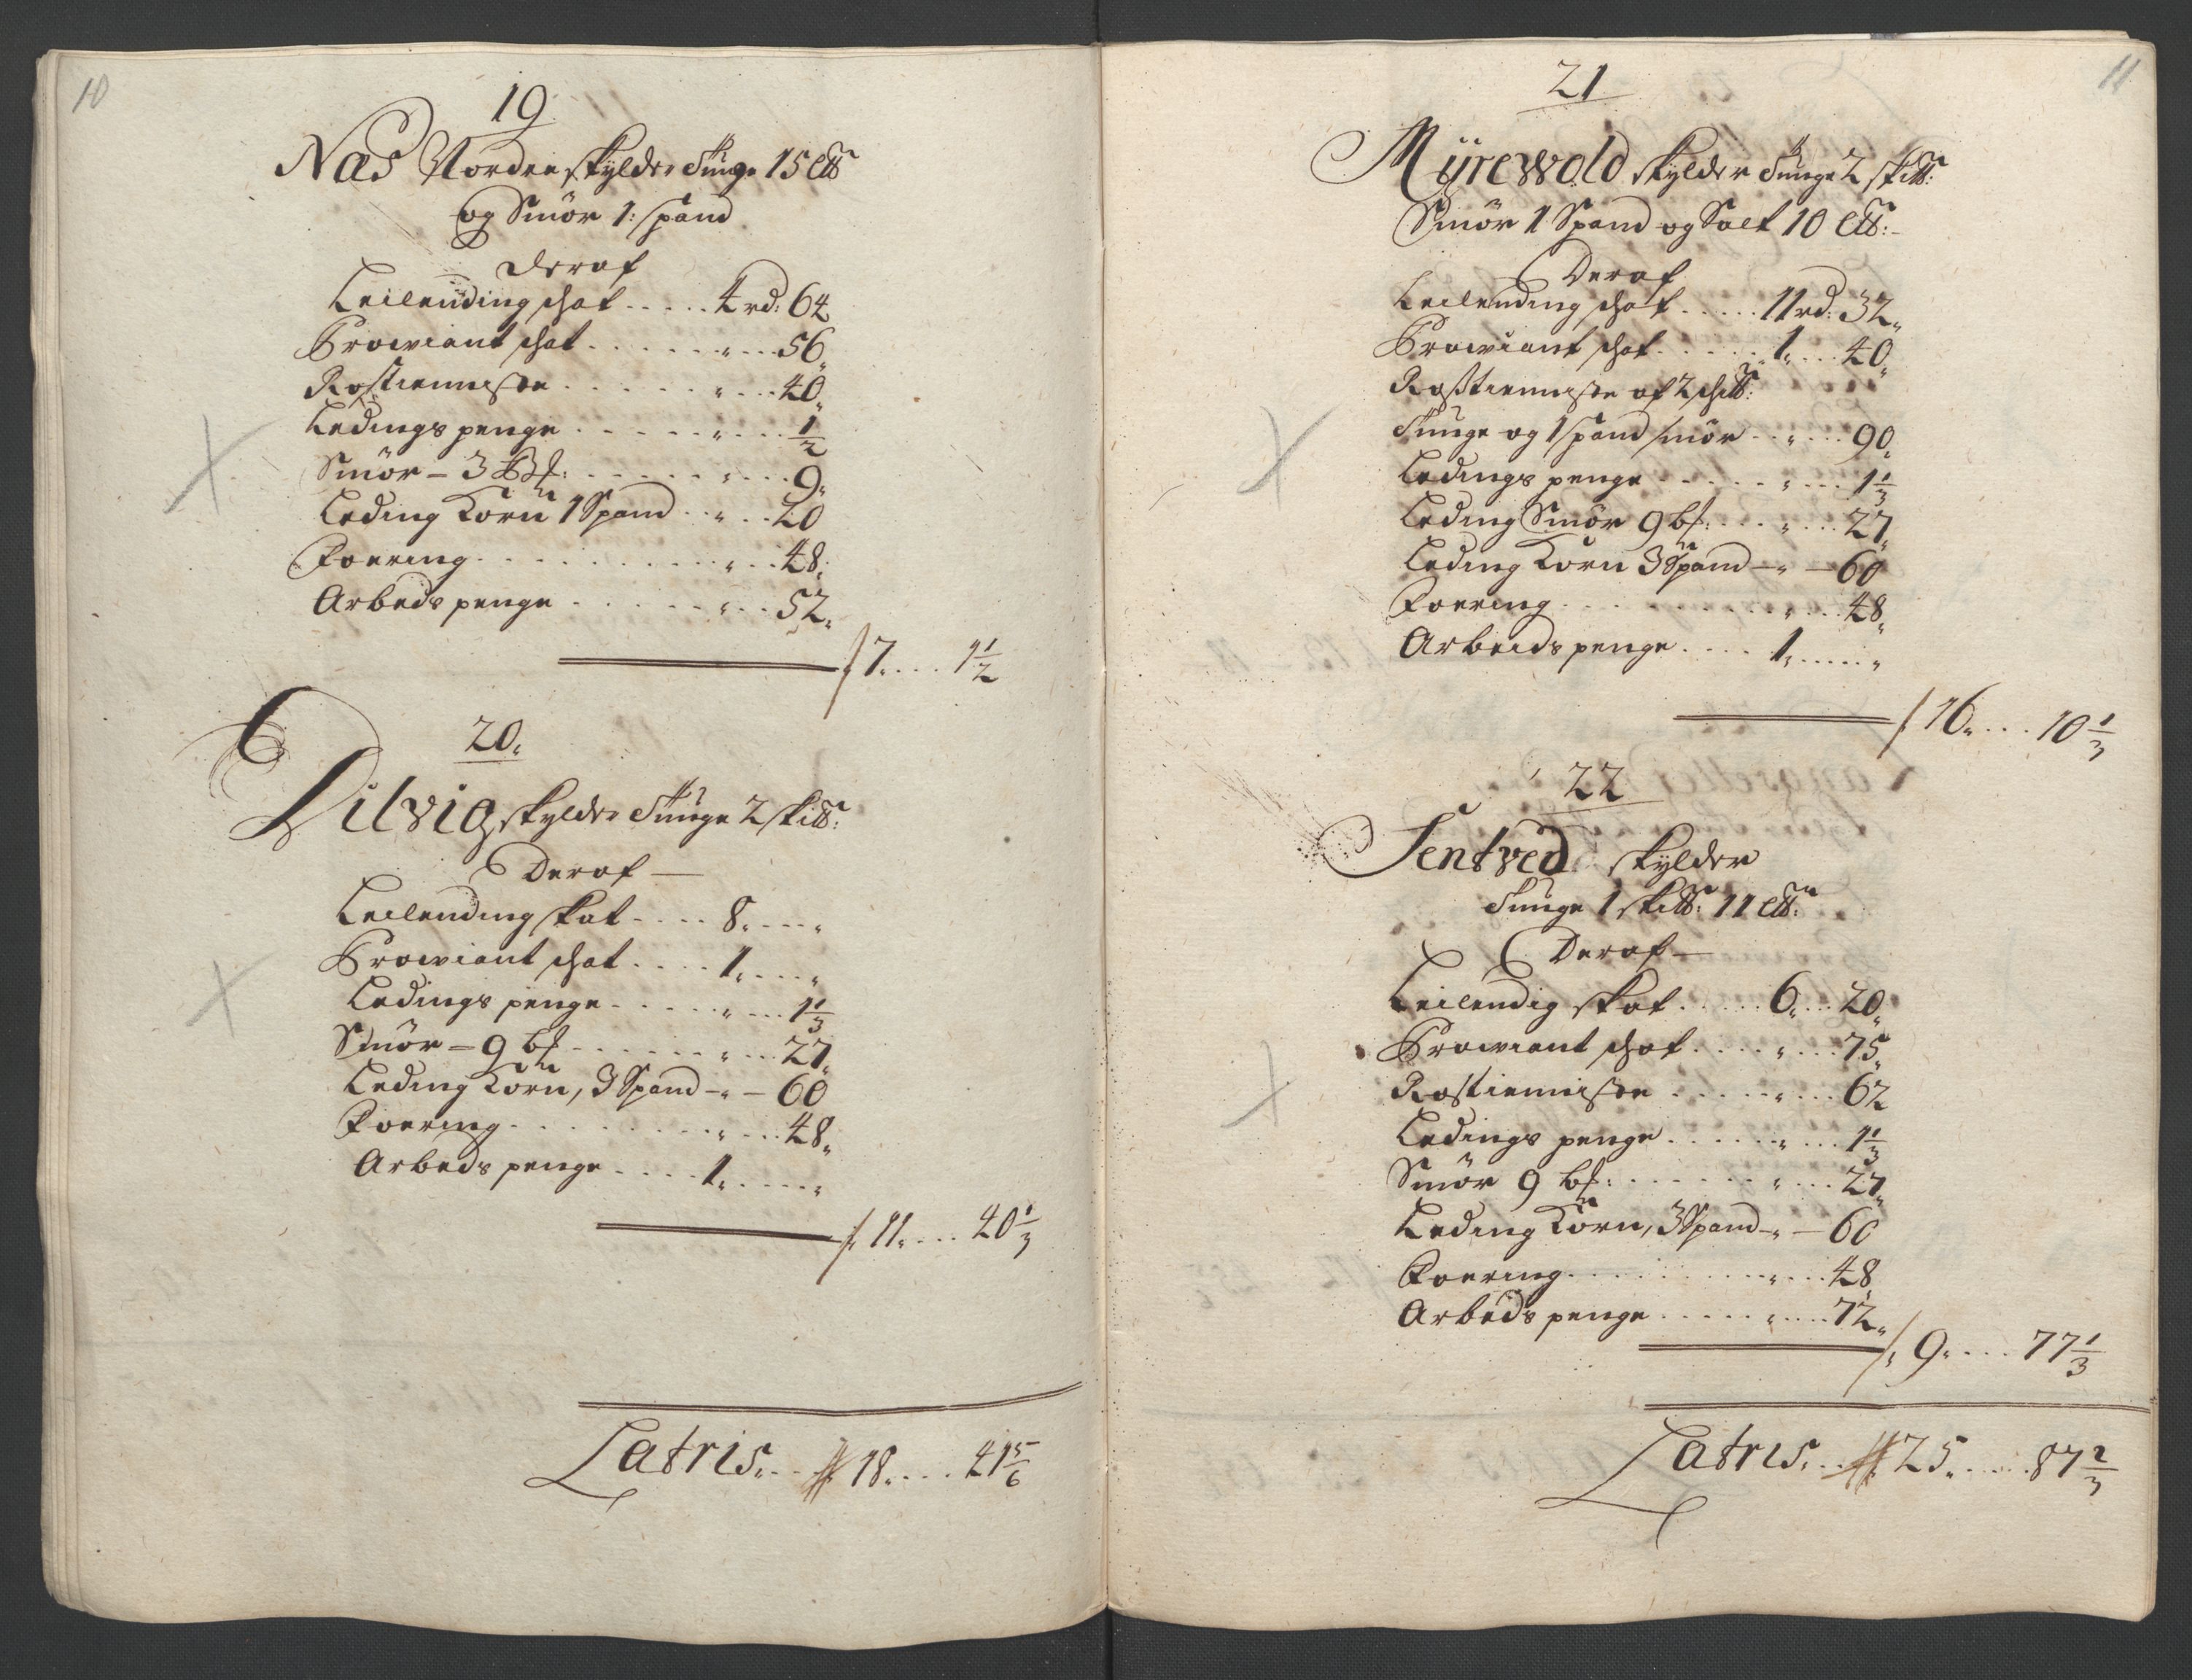 10
19
Næs Norden skylder Tunge 15 Ltt
og Smör 1: spand
Deraf
Leilending schat ..... 4 rd: 64
Prowiant schat ....... „ ... 56„
Rostienniste ....... „ ... 40„
Ledings penge ...... „ ... 1/2
Smör – 3 Bf: ....... „ ... 9„
Leding Korn 1 Spand .. „ .. 20
Foering .......... „ ... 48„
Arbeds penge ...... „ ... 52„
/ 7„ .... 1 1/2
20„
Dilvig skylder Tunge 2 skitt:
Deraf —
Leilending skat .... 8„ .... „
Prowiant schat .... 1„ .... „
Ledings penge ..... „ ... 1 1/3
Smör – 9 bf ...... „ ... 27„
Leding Korn, 3 Spand – „ – 60
Foering ......... „ ... 48„
Arbeds penge .... 1„ ..... „
/„ 11„ .... 40 1/3
Latris„ ... 18„ .... 41 5/6
11
21
Myrewold skylder Tunge 2 skitt:
Smör 1 Spand og Salt 10 Ltt: –
Deraf
Leilending schat ..... 11 rd: 32„
Prowiant schat ..... 1„ ... 40„
Rosstienniste af 2 schitt:
Tunge og 1 spand smör .. „ ... 90„
Ledings penge ..... „ ... 1 1/3
Leding Smör 9 bf: ... „ ... 27„
Leding Korn 3 Spand — „ — 60
Foering ......... „ ... 48„
Arbeids penge .... 1„ ..... „
/ 16„ .... 10 1/3
22
Tentved skylder
Tunge 1 skitt: 11 Ltt:
Deraf —
Leilendig skat ..... 6„ ... 20„
Prowiant schat .... „ ... 75„
Rostienniste ..... „ ... 62
Ledings penge ...... „ ... 1 1/3
Smör 9 bf: ...... „ ... 27„
Leding Korn, 3 Spand – „ – 60
Foering ......... „ ... 48
Arbeds penge ..... „ .... 72„
/„ 9„ .... 77 1/3
Latris„ .. 25„ ..... 87 2/3